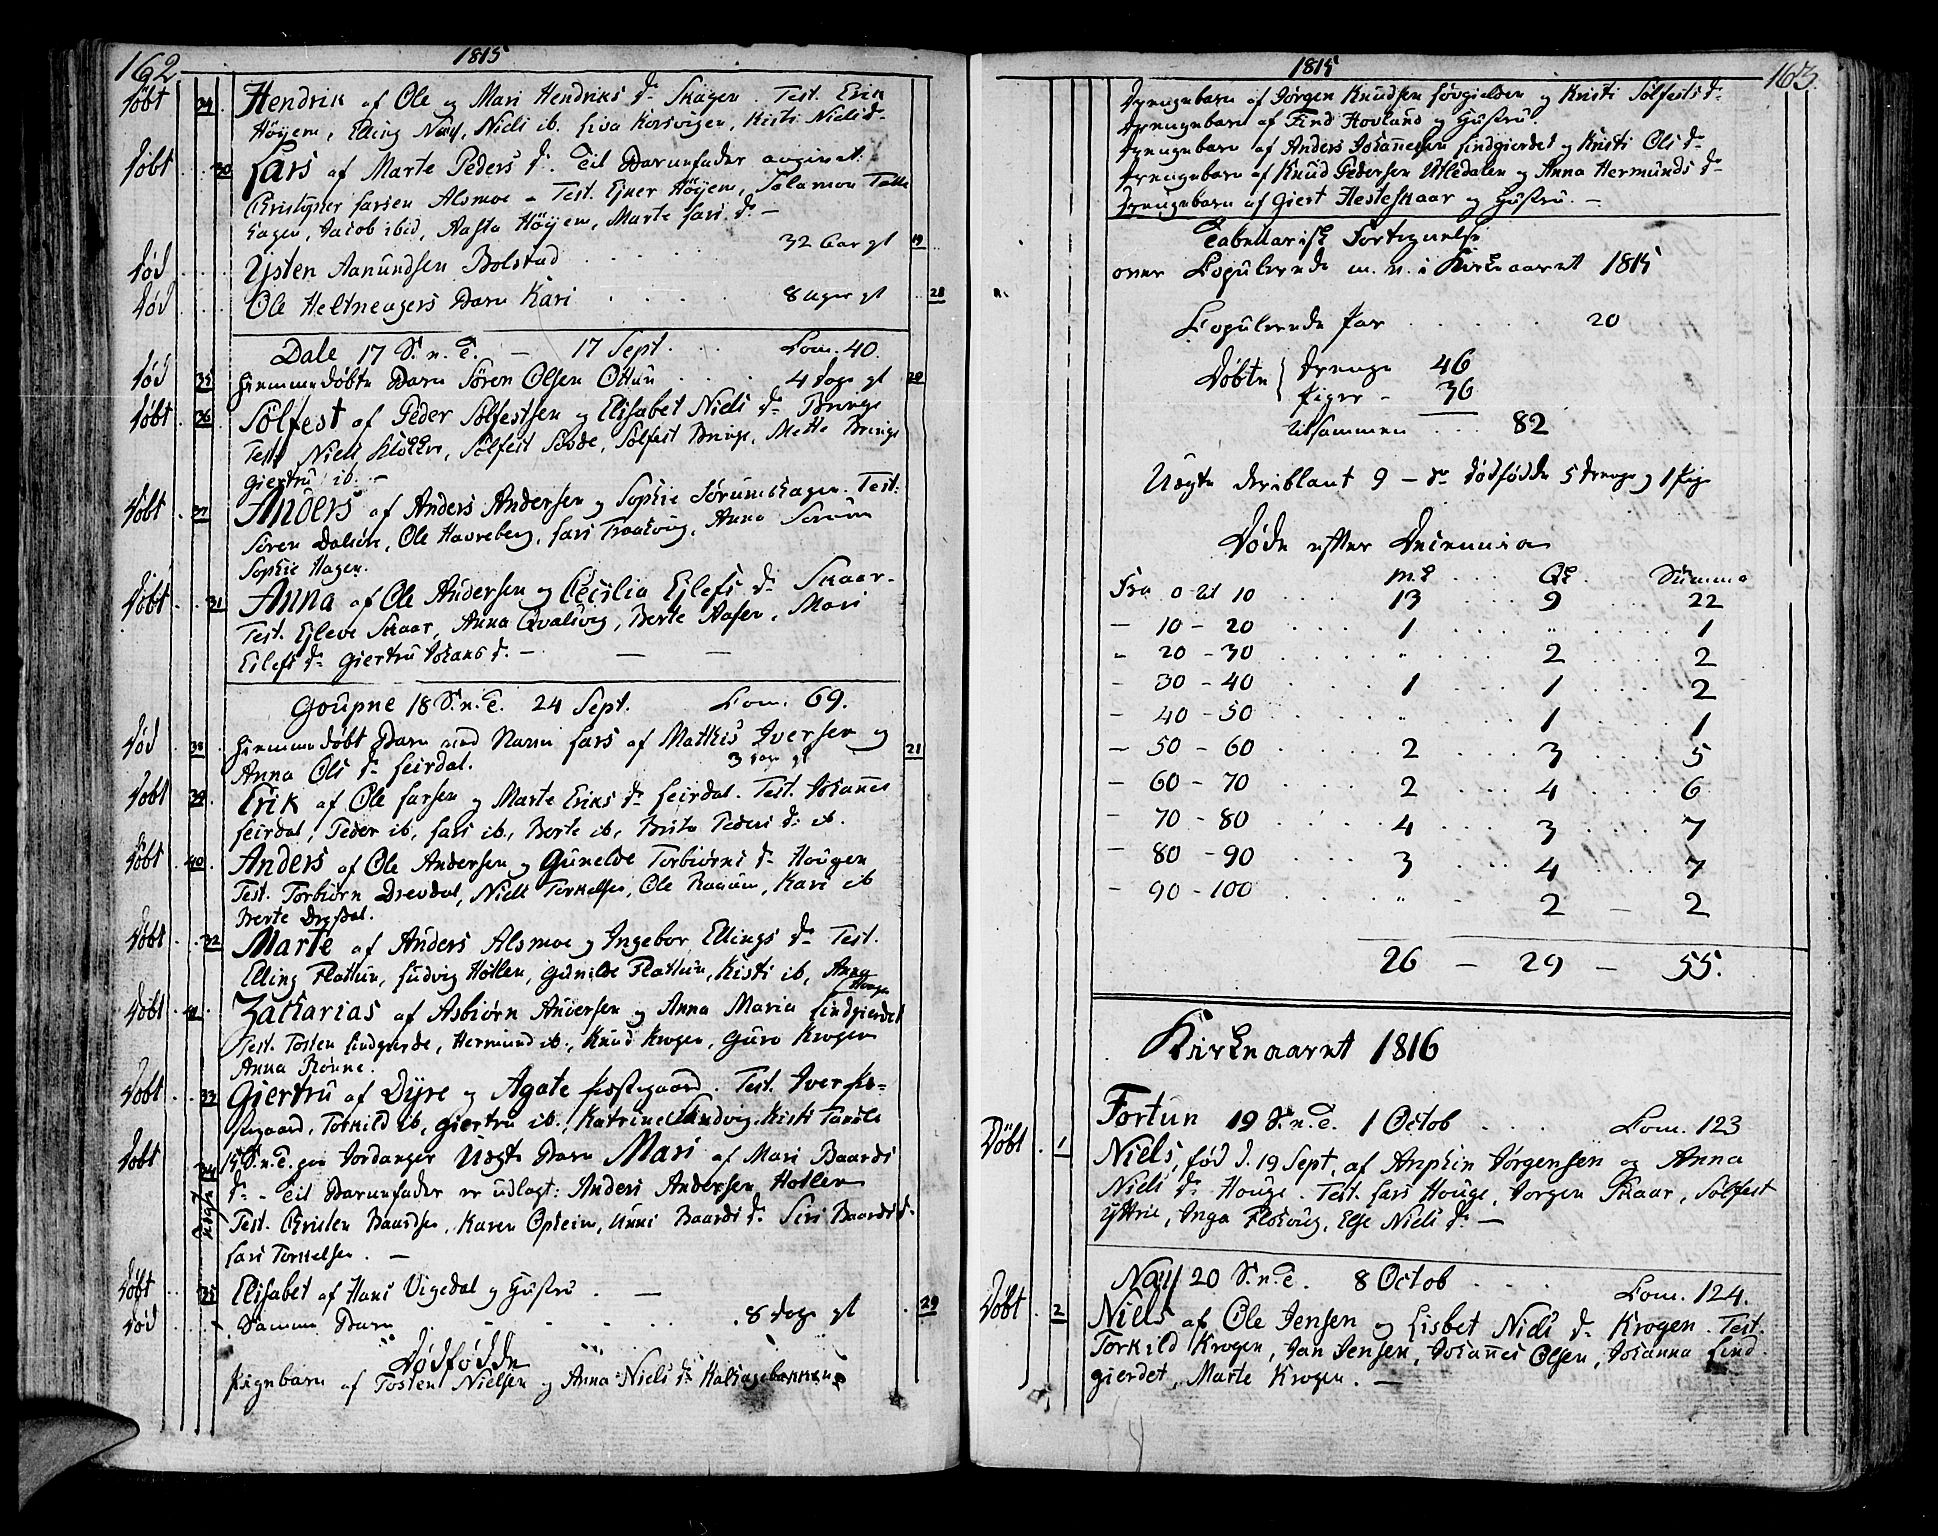 162 1815
Döbt 29. Hendrik af Ole og Mari Hendriks d. Skagen. Test. Erik
Höyem, Elling Næss, Niels ib. Liva Korsvigen, Kisti Niels d.
Döbt 30 Lars af Marte Peders d. Til Barnefader angivet
Christopher Larsen Alsmoe - Test. Ejner Höyem, Salamon
Hagen, Jacob ibid, Aasta Höyem, Marte Lars d. -
Död Ysten Aamundsen Bolstad 32 Aar gl 19
Död Ole Heltnengers Barn Kari 8 uger gl 28
Dale 17 S. n. T. - 17 Sept. Com. 40.
Död 35 Hiemmedöbte Barn Sören Olsen Ottun 4 Dage gl 20
Döbt 36 Sölfest af Peder Sölfestsen og Elisabet Niels d. Bringe
Test. Niels Klokker, Sölfest Bringe, Mette Bringe
Giertru ib. -
Döbt 37 Anders af Anders Andersen og Sophie Sörumshagen. Test:
Sören Dalsöre, Ole Havreberg, Lars Traasvig, Anna Sorum
Sophie Hagen.
Döbt 31 Anna af Ole Andersen og Cecilia Ejlefs d. Skaar-
Test. Ejleve Skaar, Anna Qvalsvig, Berte Aasen, Mari
Eilefs d. Giertru Johans d. - - -
Goupne 18 S. n. T. 24 Sept. Com. 69.
Död 38 Hiemmedöbt Barn ved Navn Lars af Mathis Iversen og 21
Anna Ols d. Leirdal. 3 Dage gl
Döbt 39. Erik af Ole Larsen og Marte Eriks d. Leirdal. Test. Johannes
Leirdal, Peder ib, Lars ib., Berte ib, Brita Peders d. ib.
Döbt 40. Anders af Ole Andersen og Gunelde Torbiörns d. Hougen
Test. Torbiörn Drevdal, Niels Torkelsen, Ole, Kari ib
Berte Drevdal.
Döbt 32 Marte af Anders Alsmoe og Ingebor Ellings d. Test.
Elling Flattun, Ludvig Hotlen, Gunilde Flattun, Kisti ib, Anna
Houge
Döbt 41 Zacharias af Asbiörn Andersen og Anna Maria Lindgierdet
Test. Tosten Lindgierde, Hermund ib., Knud Krogen, Guro Krogen
Anna Rönne.
Döbt 33 Giertru af Dyre og Agate Præstegaard. Test. Iver Præ=
stegaard, Torkild ib, Giertru ib., Katrine Sandvig, Kisti
Döbt 34 15 S. n. T. paa Jordanger Uægte Barn Mari af Mari Baards
d. - Til Barnefader er udlagt: Anders Andersen Hotlen
Test. Christen Baardsen, Karen Opheim, Unni Baards d. Siri Baards d.
Lars Torkelsen. -
Döbt 35 Elisabet af Hans Vigedal og Hustru. -
Död Samme Barn 8 Dage gl 29
Dödfödde
Pigebarn af Tosten Nielsen og Anna Niels d. Halhagebakken
1815 163.
Drengebarn af Jörgen Knudsen Sövgielden og Kristi Sölfests d.
Drengebarn af Find Hovland og Hustru.
Drengebarn af Anders Johannesen Lindgierdet og Kristi Ols d.
Drengebarn af Knud Pedersen Utledalen og Anna Hermunds d.
Drengebarn af Giert Hesteskaar og Hustru. -
Tabellarisk Fortegnelse
over Copulerede m. v. i Kirkeaaret 1815
Copulerede Par 20
Döbte { Drenge 46
Piger - 36
tilsammen 82
Uægte deriblant 9 - Do dödfödde 5 Drenge og 1 Pige
Döde efter Decennia
M.k. Qk. Summa
Fra 0 til 10 13 9 22
- 10 - 20 1 " 1
- 20 - 30 " 2 2
- 30 - 40 1 1 2
- 40 - 50 " 1 1
- 50 - 60 2 3 5
- 60 - 70 2 4 6
- 70 - 80 4 3 7
- 80 - 90 3 4 7
- 90 - 100 " - 2 - 2
26 - 29 - 55.
Kirkeaaret 1816
Fortun 19 S. n. T. 1 Octob Com. 123
Döbt 1 Niels, föd d. 19 Sept, af Anphin Jörgensen og Anna
Niels d. Houge. Test. Lars Houge, Jorgen Skaar, Sölfest
Yttrie, Inga Floesvig, Else Niels d. -
Næss 20 S. n. T. 8 Octob Com. 124.
Döbt 2 Niels af Ole Jensen og Lisbet Niels d. Krogen. Test.
Torkild Krogen, Jan Jensen, Johannes Olsen, Johanna Lind
gierdet, Marte Krogen. -